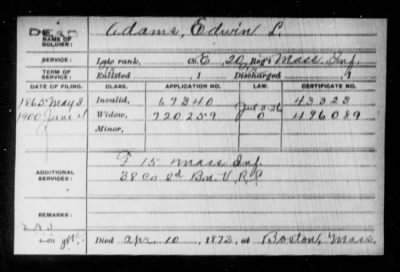 DEAD
NAME OF SOLDIER: Adams, Edwin L.
SERVICE: Late rank, Co. E, 20, Reg't Mass. Inf.
TERM OF SERVICE: Enlisted , 1 Discharged , 1
DATE OF FILING. CLASS. APPLICATION NO. LAW. CERTIFICATE NO.
1865 May 8 Invalid, 67340 43323
1900 June Widow, 720259 496089
Minor,
ADDITIONAL SERVICES: F 15 Mass Inf.
38 Co 2d Bn. V.R.C.
REMARKS:
Died Apr. 10, 1872, at Boston, Mass